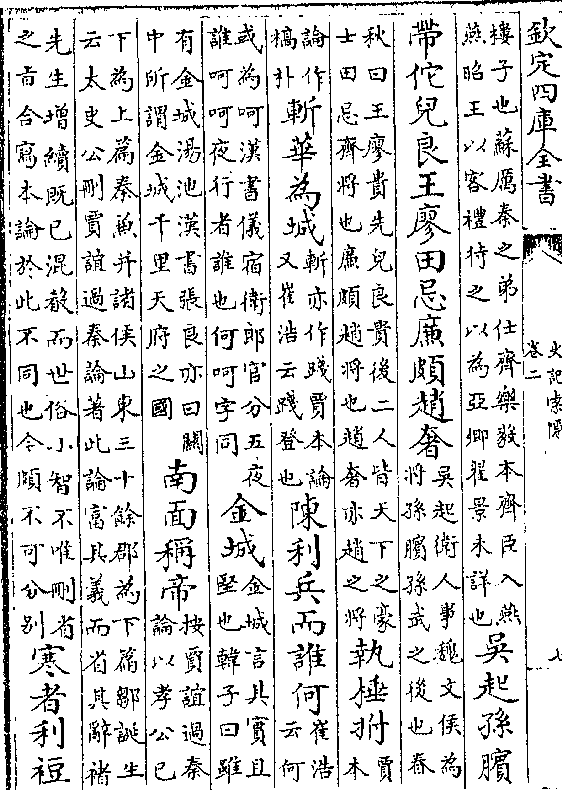 欽定四庫全書
史記索隱
卷二
七
樓子也蘇厲秦之弟仕齊樂毅本齊臣入燕
燕昭王以客禮待之以為亞卿翟景未詳也
吳起孫臏
帶佗兒良王廖田忌廉頗趙奢
吳起衛人事魏文侯為
將孫臏孫武之後也春
秋曰王廖貴先兒良貴後二人皆天下之豪
士田忌齊將也廉頗趙將也趙奢亦趙之將
執捶拊
賈
本
論作
槁朴
斬華為城
斬亦作踐賈本論
又崔浩云踐登也
陳利兵而誰何
崔浩
云何
或為呵漢書儀宿衛郎官分五夜
誰呵呵夜行者誰也何呵字同
金城
金城言其實且
堅也韓子曰雖
有金城湯池漢書張良亦曰關
中所謂金城千里天府之國
南面稱帝
按賈誼過秦
論以孝公已
下為上篇秦兼并諸侯山東三十餘郡為下篇鄒誕生
云太史公刪賈誼過秦論著此論富其義而省其辭褚
先生增續既已混殽而世俗小智不唯刪省
之旨合寫本論於此不同也今頗不可分別
寒者利裋